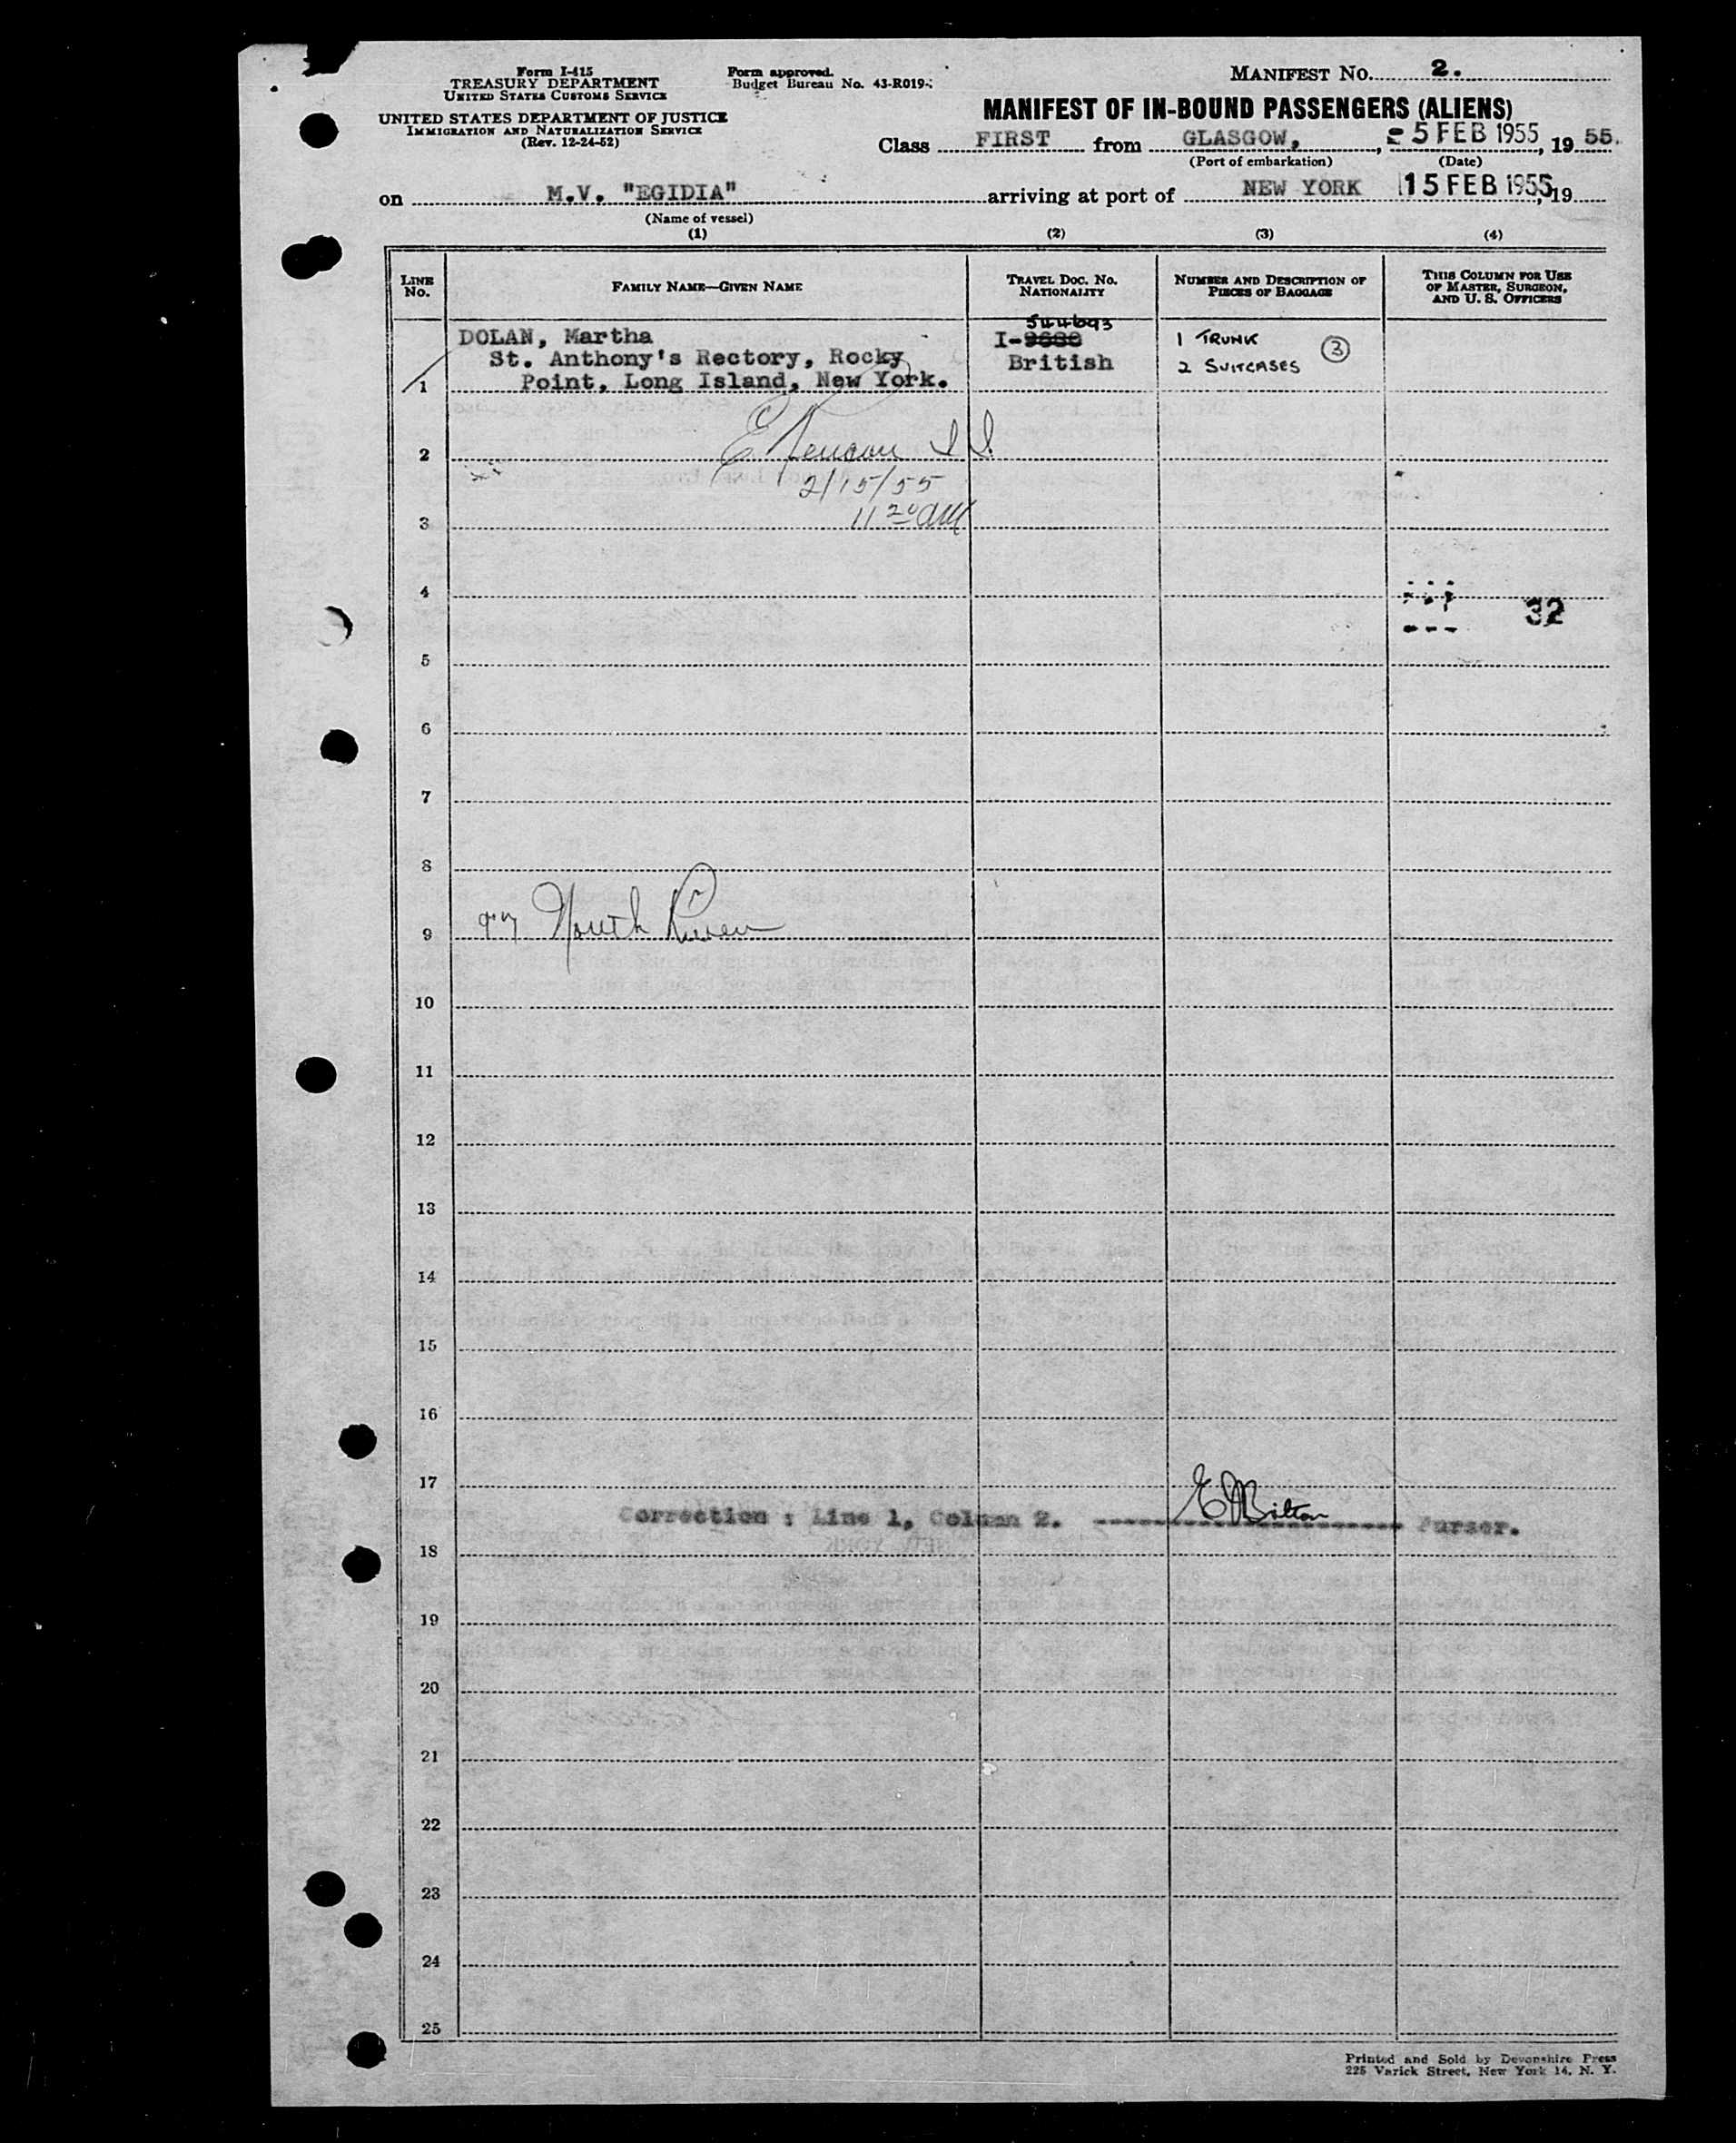 Form I-415
TREASURY DEPARTMENT
UNITED STATES CUSTOMS SERVICE
UNITED STATES DEPARTMENT OF JUSTICE
IMMIGRATION AND NATURALIZATION SERVICE
(Rev. 12-24-52)
Form approved.
Budget Bureau No. 43-R019-
MANIFEST NO. 2.
MANIFEST OF IN-BOUND PASSENGERS (ALIENS)
Class FIRST from GLASGOW, 5 FEB 1955, 19 55.
(Port of embarkation) (Date)
on M.V. "EGIDIA" arriving at port of NEW YORK 15 FEB 1955, 19
(Name of vessel)
(1) (2) (3) (4)
LINE NO.
FAMILY NAME—GIVEN NAME
TRAVEL DOC. NO.
NATIONALITY
NUMBER AND DESCRIPTION OF
PIECES OF BAGGAGE
THIS COLUMN FOR USE
OF MASTER, SURGEON,
AND U. S. OFFICERS
DOLAN, Martha
St. Anthony's Rectory, Rocky
1 Point, Long Island, New York.
544693
I-
British
1 TRUNK
2 SUITCASES
3
2
2/15/55
3 11 20 AM
4
32
5
6
7
8
9 97 North River
10
11
12
13
14
15
16
17
Correction : Line 1, Column 2. E Bilton Purser.
18
19
20
21
22
23
24
25
Printed and Sold by Devonshire Press
225 Varick Street, New York 14, N. Y.